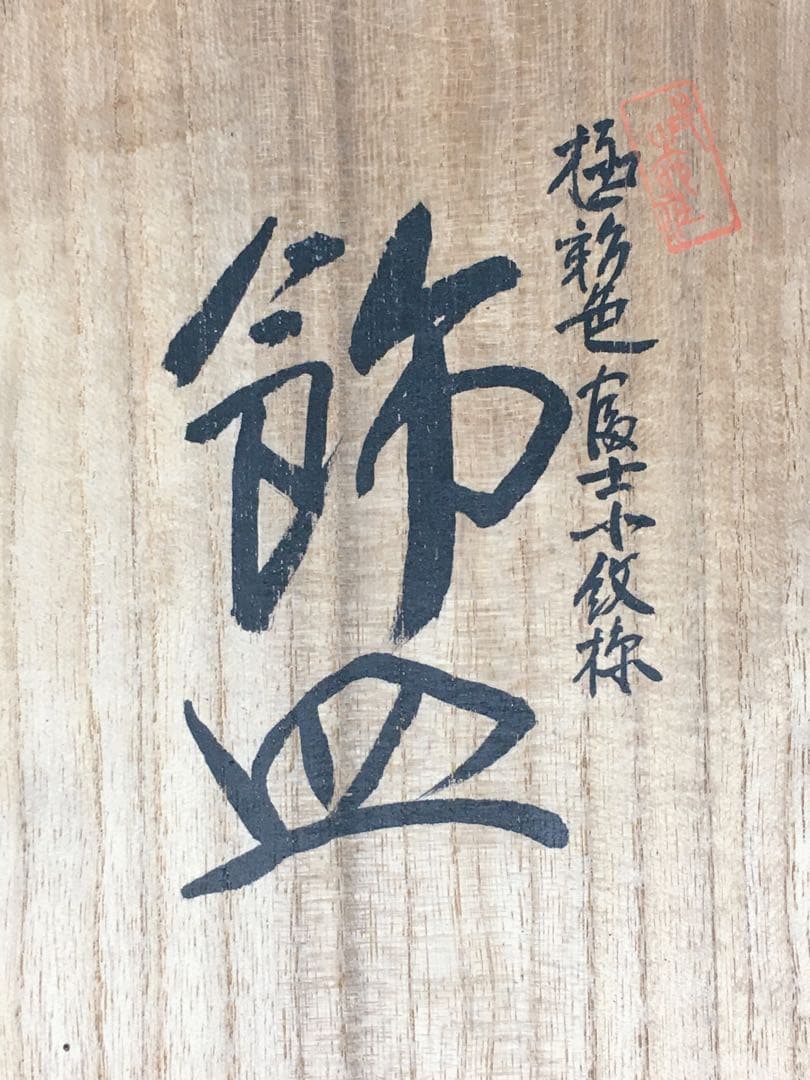 極彩色富士小紋様
飾皿